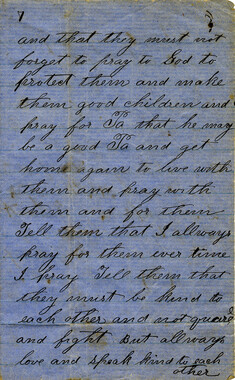 7
and that they must not
forget to pray to God to
protect them and make
them good children and
pray for Pa that he may
be a good Pa and get
home again to live with
them and pray with
them and for them
Tell them that I allways
pray for them ever time
I pray Tell them that
they must be kind to
each other and not quarel
and fight But allways
love and speak kind to each
other